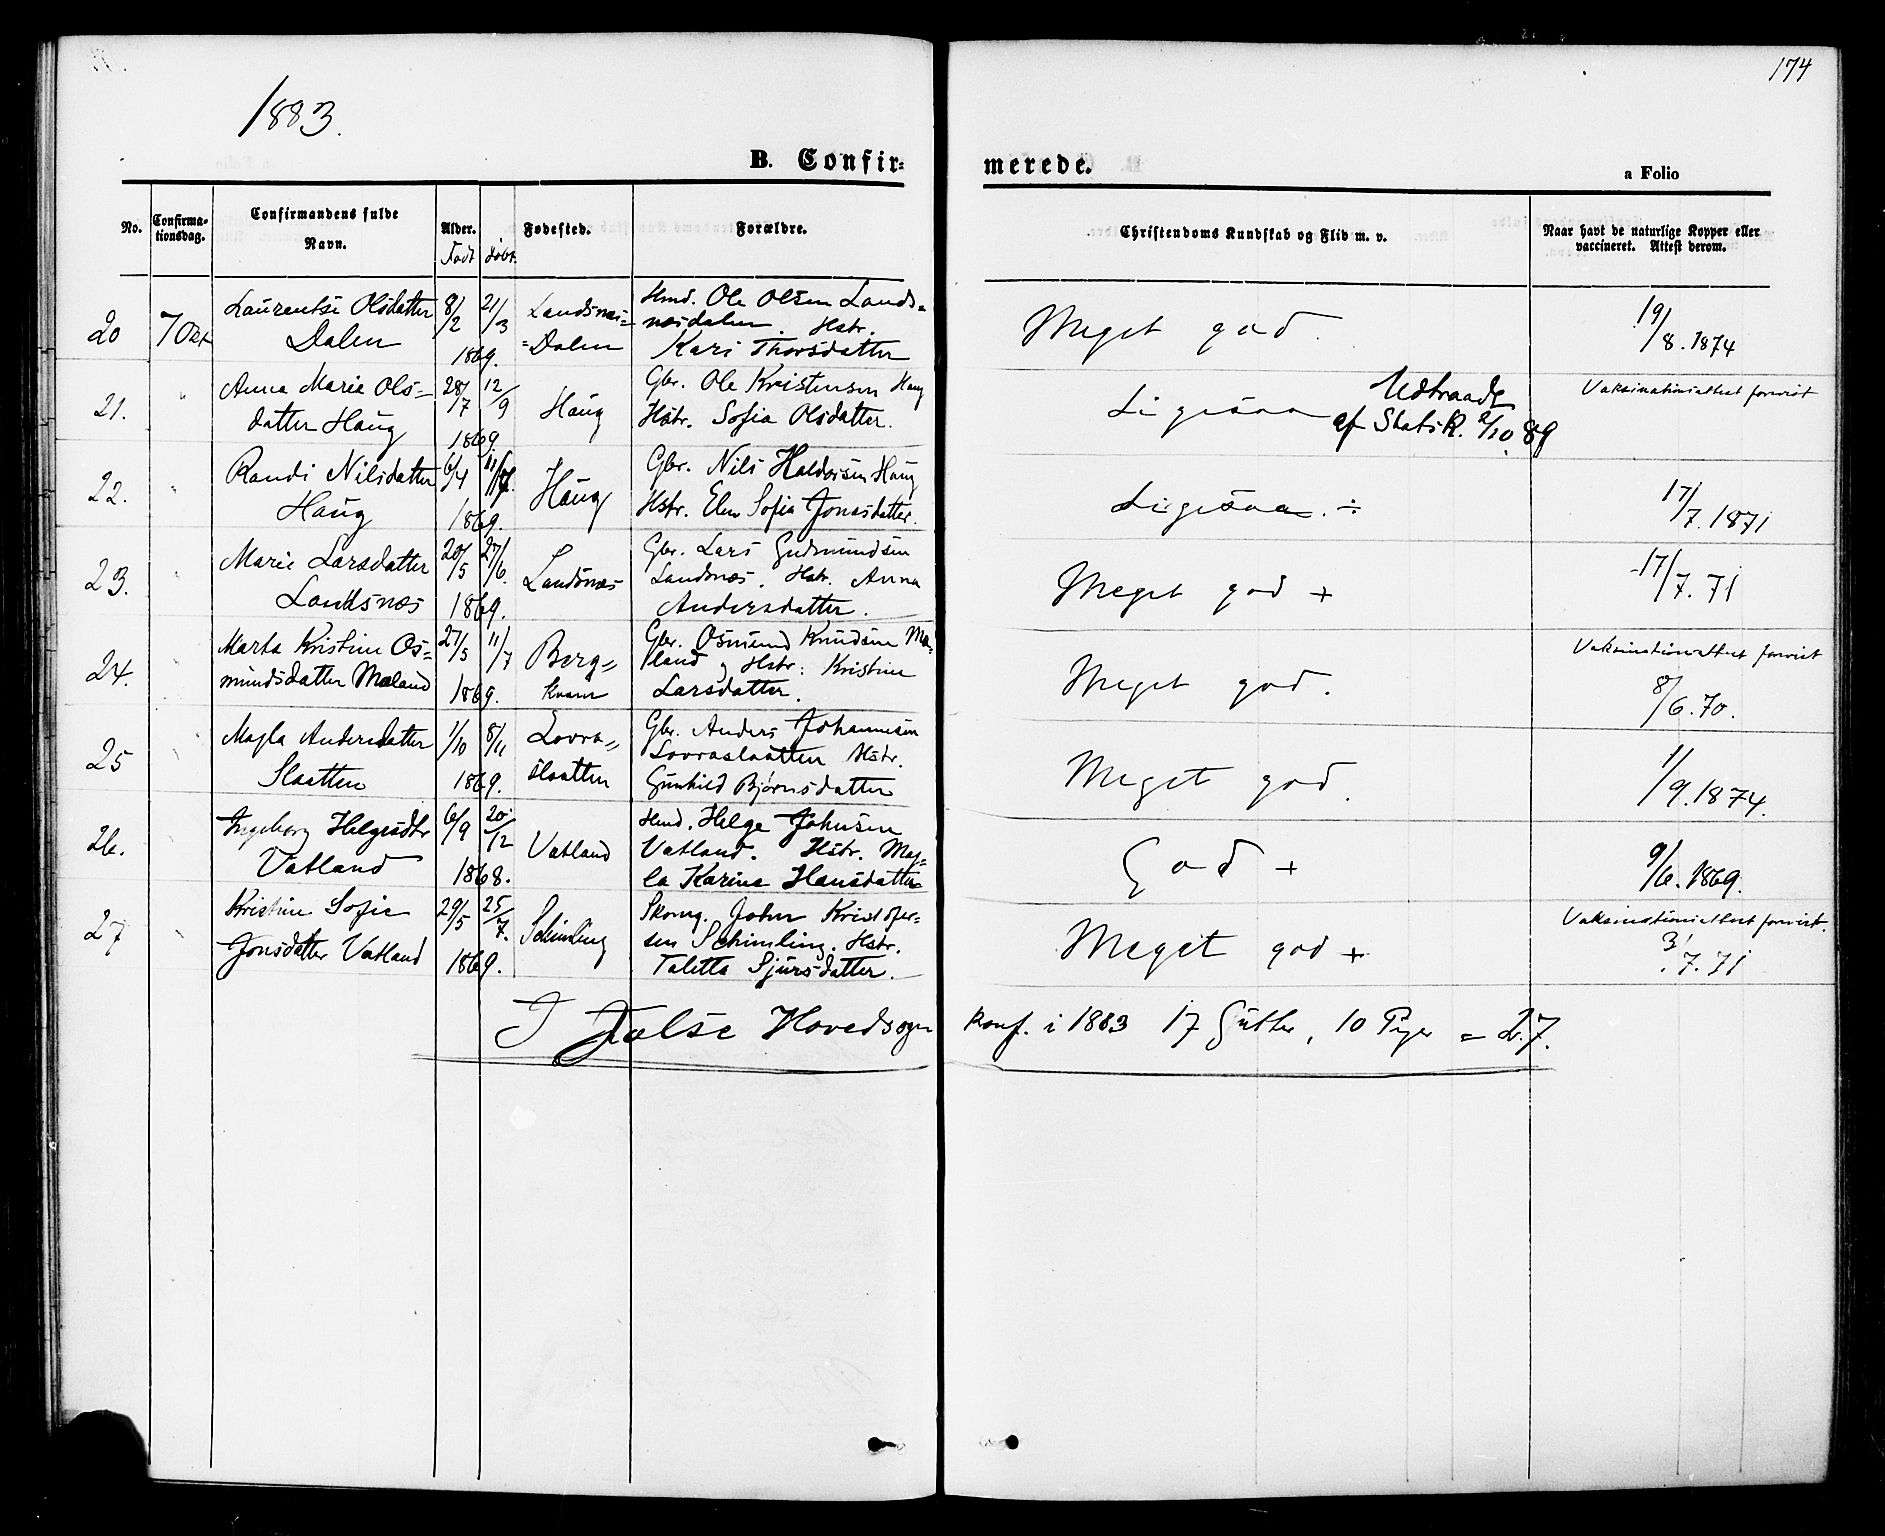 174
1883.
B. Confir-
merede.
a Folio
No.
Confirma-
tionsdag.
Confirmandens fulde
Navn.
Alder.
Født
døbt.
Fødested.
Forældre.
Christendoms Kundskab og Flid m. v.
Naar havt de naturlige Kopper eller
vaccineret. Attest derom.
20
7 Okt
Laurentse Olsdatter
Dalen
8/2 21/3
1869.
Landsnæs=
=Dalen
Hmd. Ole Olsen Lands=
næsdalen. Hstr.
Kari Thorsdatter
Meget god.
19/8. 1874
21.
"
Anna Marie Ols=
datter Haug
28/7 12/9
1869.
Haug
Gbr. Ole Kristensen Haug
Hstr. Sofia Olsdatter.
Ligesaa
Udtraadt
af StatsK. 2/10 89
Vaksinationsattest forevist
22.
"
Randi Nilsdatter
Haug
6/4
1869.
Haug
Gbr. Nils Haldorsen Haug
Hstr. Elen Sofia Jonasdatter.
Ligesaa. ÷
17/7. 1871
23.
"
Marie Larsdatter
Landsnæs
20/5 27/6.
1869.
Landsnæs
Gbr. Lars Gudmundsen
Landsnæs. Hstr. Anna
Andersdatter.
Meget god +
17/7. 71
24.
"
Marta Kristine Os=
mundsdatter Mæland
27/5 11/7
1869.
Berg=
kvam
Gbr. Osmund Knudsen Mæ=
land og Hstr: Kristine
Larsdatter.
Meget god.
Vaksinationsattest forevist
8/6. 70.
25
"
Magla Andersdatter
Slaatten
1/10 8/11
1869.
Lovra=
slaatten
Gbr. Anders Johannesen
Lovraslaatten Hstr.
Gunhild Bjørnsdatter
Meget god.
1/9. 1874.
26.
Ingeborg Helgesdtr
Vatland
6/9 20/12
1868.
Vatland
Hmd. Helge Johnsen
Vatland. Hstr. Mag=
la Karine Hansdatter
God +
9/6. 1869.
27
"
Kristine Sofie
Jonsdatter Vatland
29/5 25/7.
1869.
Schimling
John Kristofer=
sen Schimling. Hstr.
Taletta Sjursdatter.
Meget god +
Vaksinationsattest forevist.
3/7. 71
I Jælse Hovedsogn konf. i 1883 17 Gutter, 10 Piger = 27.